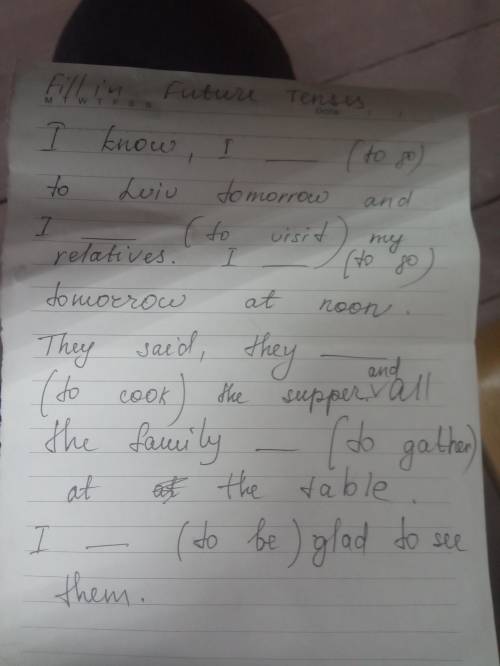 Fill in Future Tenses.
M T W T F S S Date
I know, I ___ (to go)
to Lviv tomorrow and
I ___ (to visit) my
relatives. I ___ (to go)
tomorrow at noon.
They said, they ___
and
(to cook) the supper, all
the family ___ (to gather)
at the table.
I ___ (to be) glad to see
them.